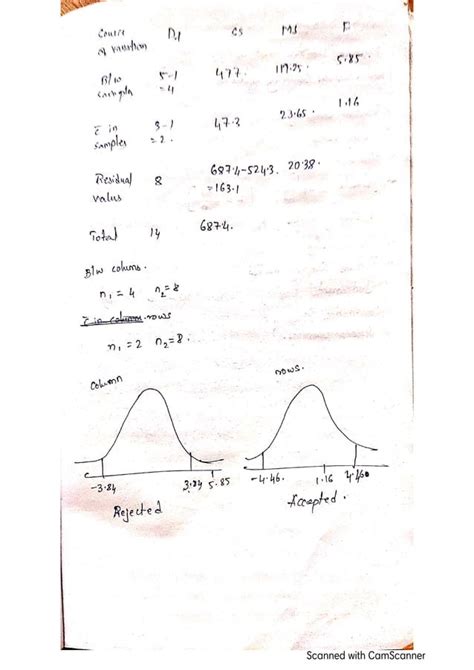 Source of variation D.f SS MS F
B/w samples 5-1 =4 477. 119.25. 5.85.
E in samples 3-1 =2. 47.3 23.65. 1.16
Residual values 8 687.4-524.3. =163.1 20.38.
Total 14 687.4.
B/w colums.
n₁ = 4 n₂=8
rows
n₁ = 2 n₂=8.
column
rows.
-3.84 3.84 5.85
-4.46. 1.16 4.460
Rejected
Accepted.
Scanned with CamScanner